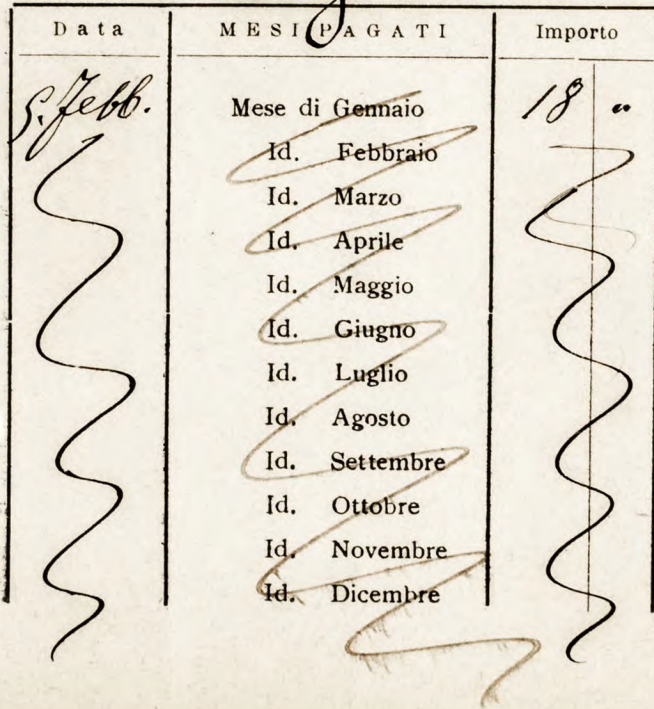 Data MESI PAGATI Importo
5. Febb. Mese di Gennaio 18 "
Id. Febbraio
Id. Marzo
Id. Aprile
Id. Maggio
Id. Giugno
Id. Luglio
Id. Agosto
Id. Settembre
Id. Ottobre
Id. Novembre
Id. Dicembre